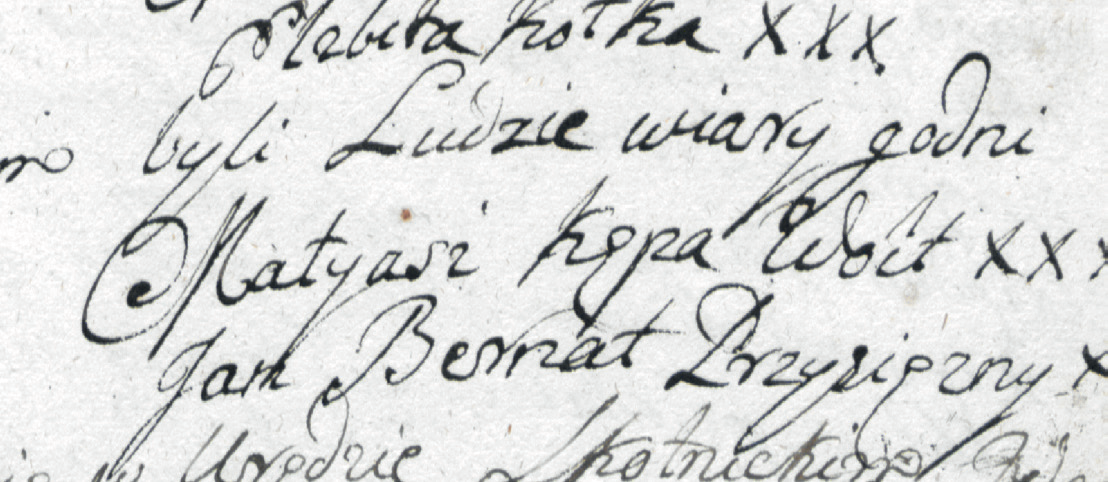 Elzbieta Kotka X X X
byli Ludzie wiary godni
Matyasz Kępa Woit X X X
Jan Bernat Przysięzny X
w Urzędzie Skotnickim